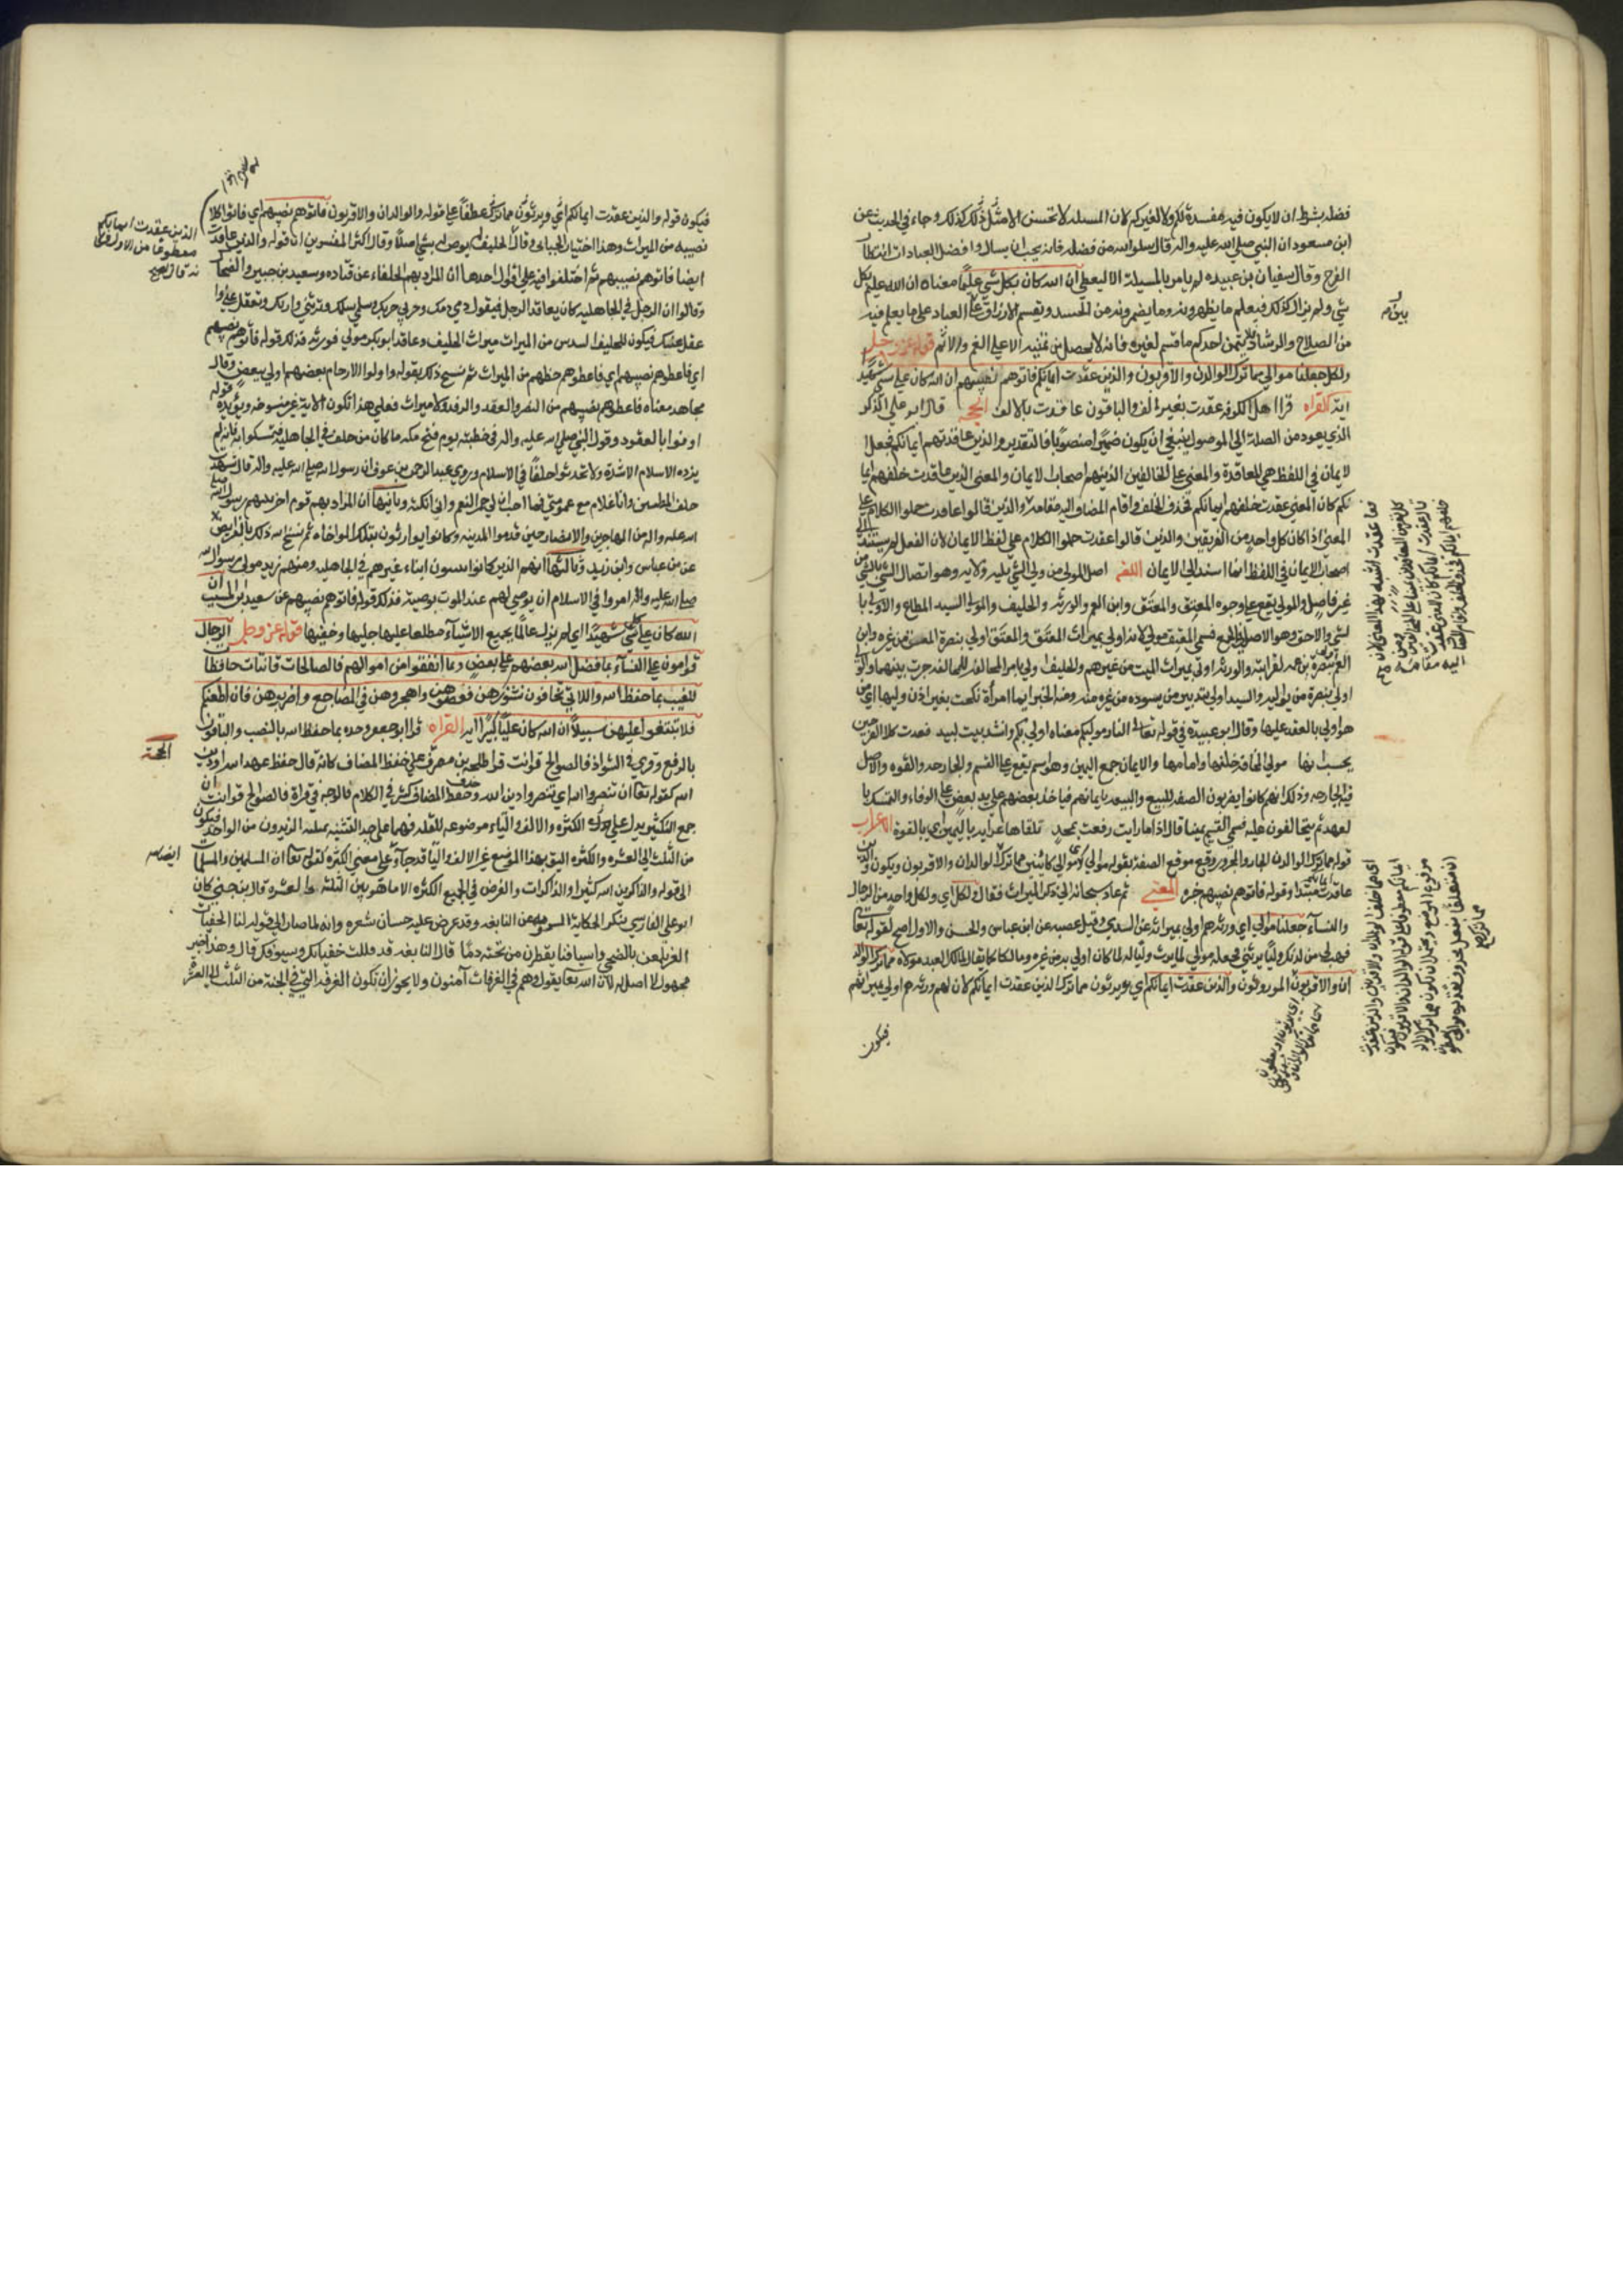 فضله بشرط ان لا يكون فيه مفسدة لكم ولا لغيركم لان المسئلة لا تحسن الا مثل ذلك كذلك وجاء في الحديث عن
ابن مسعود ان النبي صلى الله عليه واله قال سلوا الله من فضله فانه يحب ان يسال وافضل العبادات انتظار
الفرج وقال سفيان بن عيينه لم يامر بالمسيلة الا ليعطي ان الله كان بكل شي عليما معناه ان الله عليم بكل
شي ولم يزل كذلك فيعلم ما يظهرونه وما يضمرونه من الحسد ويقسم الارزاق على العباد على ما يعلم فيه
من الصلاح والرشاد فلا يتمن احدكم ما قسم لغيره فانه لا يحصل من تمنيه الا على الغم والاثم قوله عز وجل
ولكل جعلنا موالي مما ترك الوالدان والاقربون والذين عقدت ايمانكم فاتوهم نصيبهم ان الله كان على كل شي شهيدا
اية القراه قرا اهل الكوفة عقدت بغير الف والباقون عاقدت بالالف الحجه قال ابو علي الذكر
الذي يعود من الصلة الى الموصول ينبغي ان يكون ضميرا منصوبا فالتقدير والذين عاقدتهم ايمانكم فجعل
الايمان في اللفظ هي المعاقدة والمعنى على الحالفين الذين هم اصحاب الايمان والمعنى الذين عاقدت حلفهم ايما
نكم كان المعنى عقدت حلفهم ايمانكم فحذف الحلف واقام المضاف اليه مقامه والذين قالوا عاقدت حملوا الكلام على
المعنى اذا كان كل واحد من الفريقين والذين قالوا عقدت حملوا الكلام على لفظ الايمان لان الفعل لم يستند الى
اصحاب الايمان في اللفظ انما اسند الى الايمان اللغه اصل المولى من ولي الشي يليه ولاية وهو اتصال الشي بالشي من
غير فاصل والمولى يقع على وجوه المعتِق والمعتَق وابن العم والورثه والحليف والمولى السيد المطاع والاولى با
لشي والاحق وهو الاصل في الجميع فسمي المعتِق مولى لانه اولى بميراث المعتَق والمعتَق اولى بنصرة المعتق من غيره وابن
العم اولى بنصرة بن عمه لقرابته والورثه اولى بميراث الميت من غيرهم والحليف اولى بامر المحالفه للمحالفه جرت بينهما والولي
اولى بنصرة من يواليه والسيد اولى بتدبير من يسوده من غيره ومنه الخبر ايما امراة نكحت بغير اذن وليها اي من
هو اولى بالعقد عليها وقال ابو عبيدة في قوله تعالى النار موليكم معناه اولى بكم وانشد بيت لبيد فغدت كلا الفرجين
يحسب انها مولى المخافة خلفها وامامها والايمان جمع اليمين وهو اسم يقع على القسم والجارحه والقوه والاصل
فيه الجارحه وذلك انهم كانوا يضربون الصفقه للبيع والبيعه بايمانهم فياخذ بعضهم على يد بعض على الوفاء والتمسك با
لعهد ثم يتحالفون عليه فسمي القسم يمينا قال اذا ما رايت رفعت لمجد تلقاها عرابة باليمين اي بالقوة الاعراب
قوله مما ترك الوالدان الجار والمجرور وقع موقع الصفة بقوله موالي اي موالي كائنين مما ترك الوالدان والاقربون ويكون والذين
عاقدت ايمانكم مبتدا وقوله فاتوهم نصيبهم خبره المعنى ثم عاد سبحانه الى ذكر الميراث فقال ولكل اي ولكل واحد من الرجال
والنساء جعلنا موالي اي ورثة هم اولى بميراثه عن السدي وقيل عصبه عن ابن عباس والحسن والاول اصح لقوله تعالى
فهب لي من لدنك وليا يرثني فجعله مولى لما يرث ووليا له لما كان اولى به من غيره ومالكا كما يقال لمالك العبد مولاه مما ترك الوالد
ان والاقربون الموروثون والذين عقدت ايمانكم اي ويرثون مما ترك الذين عقدت ايمانكم لان لهم ورثة هم اولى بميراثهم
فيكون
فيكون قوله والذين عقدت ايمانكم اي ويرثون مما ترك عطفا على قوله والوالدان والاقربون فاتوهم نصيبهم اي فاتوا كلا
نصيبه من الميراث وهذا اختيار الجبائي وقال الحليف لم يوصل بشي اصلا وقال اكثر المفسرين ان قوله والذين عاقدت
ايضا فاتوهم نصيبهم ثم اختلفوا فيه على اقوال احدها ان المراد بهم الحلفاء عن قتاده وسعيد بن جبير والضحاك
وقالوا ان الرجل في الجاهليه كان يعاقد الرجل فيقول دمي دمك وحربي حربك وسلمي سلمك وترثني وارثك وتعقل عني واعقل
عنك فيكون للحليف السدس من الميراث ميراث الحليف وعاقد ابو بكر مولى فورثه فذلك قوله فاتوهم نصيبهم
اي فاعطوهم نصيبهم اي فاعطوهم حظهم من الميراث ثم نسخ ذلك بقوله واولوا الارحام بعضهم اولى ببعض وقال
مجاهد معناه فاعطوهم نصيبهم من النصر والعقد والرفد ولا ميراث فعلى هذا تكون الاية غير منسوخة ويؤيده قوله
اوفوا بالعقود وقول النبي صلى الله عليه واله في خطبته يوم فتح مكه ما كان من حلف في الجاهليه فتمسكوا به فانه لم
يزده الاسلام الا شدة ولا تحدثوا حلفا في الاسلام وروى عبد الرحمن بن عوف ان رسول الله صلى الله عليه واله قال شهدت
حلف المطيبين وانا غلام مع عمومتي فما احب ان لي حمر النعم واني انكثه وثانيها ان المراد بهم قوم اخى بينهم رسول الله صلى
الله عليه واله من المهاجرين والانصار حين قدموا المدينه وكانوا يتوارثون بتلك المواخاه ثم نسخ الله ذلك بالفرايض
عن بن عباس وابن زيد وثالثها انهم الذين كانوا يتبنون ابناء غيرهم في الجاهليه ومنهم زيد مولى رسول الله
صلى الله عليه واله امروا في الاسلام ان يوصى لهم عند الموت بوصية فذلك قوله فاتوهم نصيبهم عن سعيد بن المسيب ان
الله كان على كل شي شهيدا اي لم يزل عالما بجميع الاشياء مطلعا عليها جليها وخفيها قوله عز وجل الرجال
قوامون على النساء بما فضل الله بعضهم على بعض وبما انفقوا من اموالهم فالصالحات قانتات حافظات
للغيب بما حفظ الله واللاتي تخافون نشوزهن فعظوهن واهجروهن في المضاجع واضربوهن فان اطعنكم
فلا تبتغوا عليهن سبيلا ان الله كان عليا كبيرا اية القراه قرا ابو جعفر وحده بما حفظ الله بالنصب والباقون
الحجة
بالرفع وقري في الشواذ فالصوالح قوانت قرا طلحه بن مصرف على حذف المضاف كانه قال حفظ عهد الله او دين
الله كقوله تعا ان تنصروا الله اي تنصروا دين الله وحذف المضاف كثير في الكلام فالوجه في قراة فالصوالح قوانت ان
جمع التكثير يدل على الكثره والالف والتاء موضوعه للقله فهما على حد التثنيه بمنزلة الزيدون من الواحد فيكون
من الثلث الى العشره والكثره اليق بهذا الموضع غير الالف والتا قد جا على معنى الكثره كقوله تعا ان المسلمين والمسلمات
الى قوله والذاكرين الله كثيرا والذاكرات والغرض في الجميع الكثره لا ما هو بين الثلثه والعشره قال بن جني كان
ابو علي الفارسي ينكر الحكاية المرويه عن النابغه وقد عرض عليه حسان شعره وانه لما صار الى قوله لنا الجفنات
الغر يلمعن بالضحى واسيافنا يقطرن من نجدة دما قال النابغه قد قللت جفناتك وسيوفك قال وهذا خبر
مجهول لا اصل له لان الله تعا يقول وهم في الغرفات آمنون ولا يجوز ان تكون الغرف التي في الجنة من الثلث الى العشر